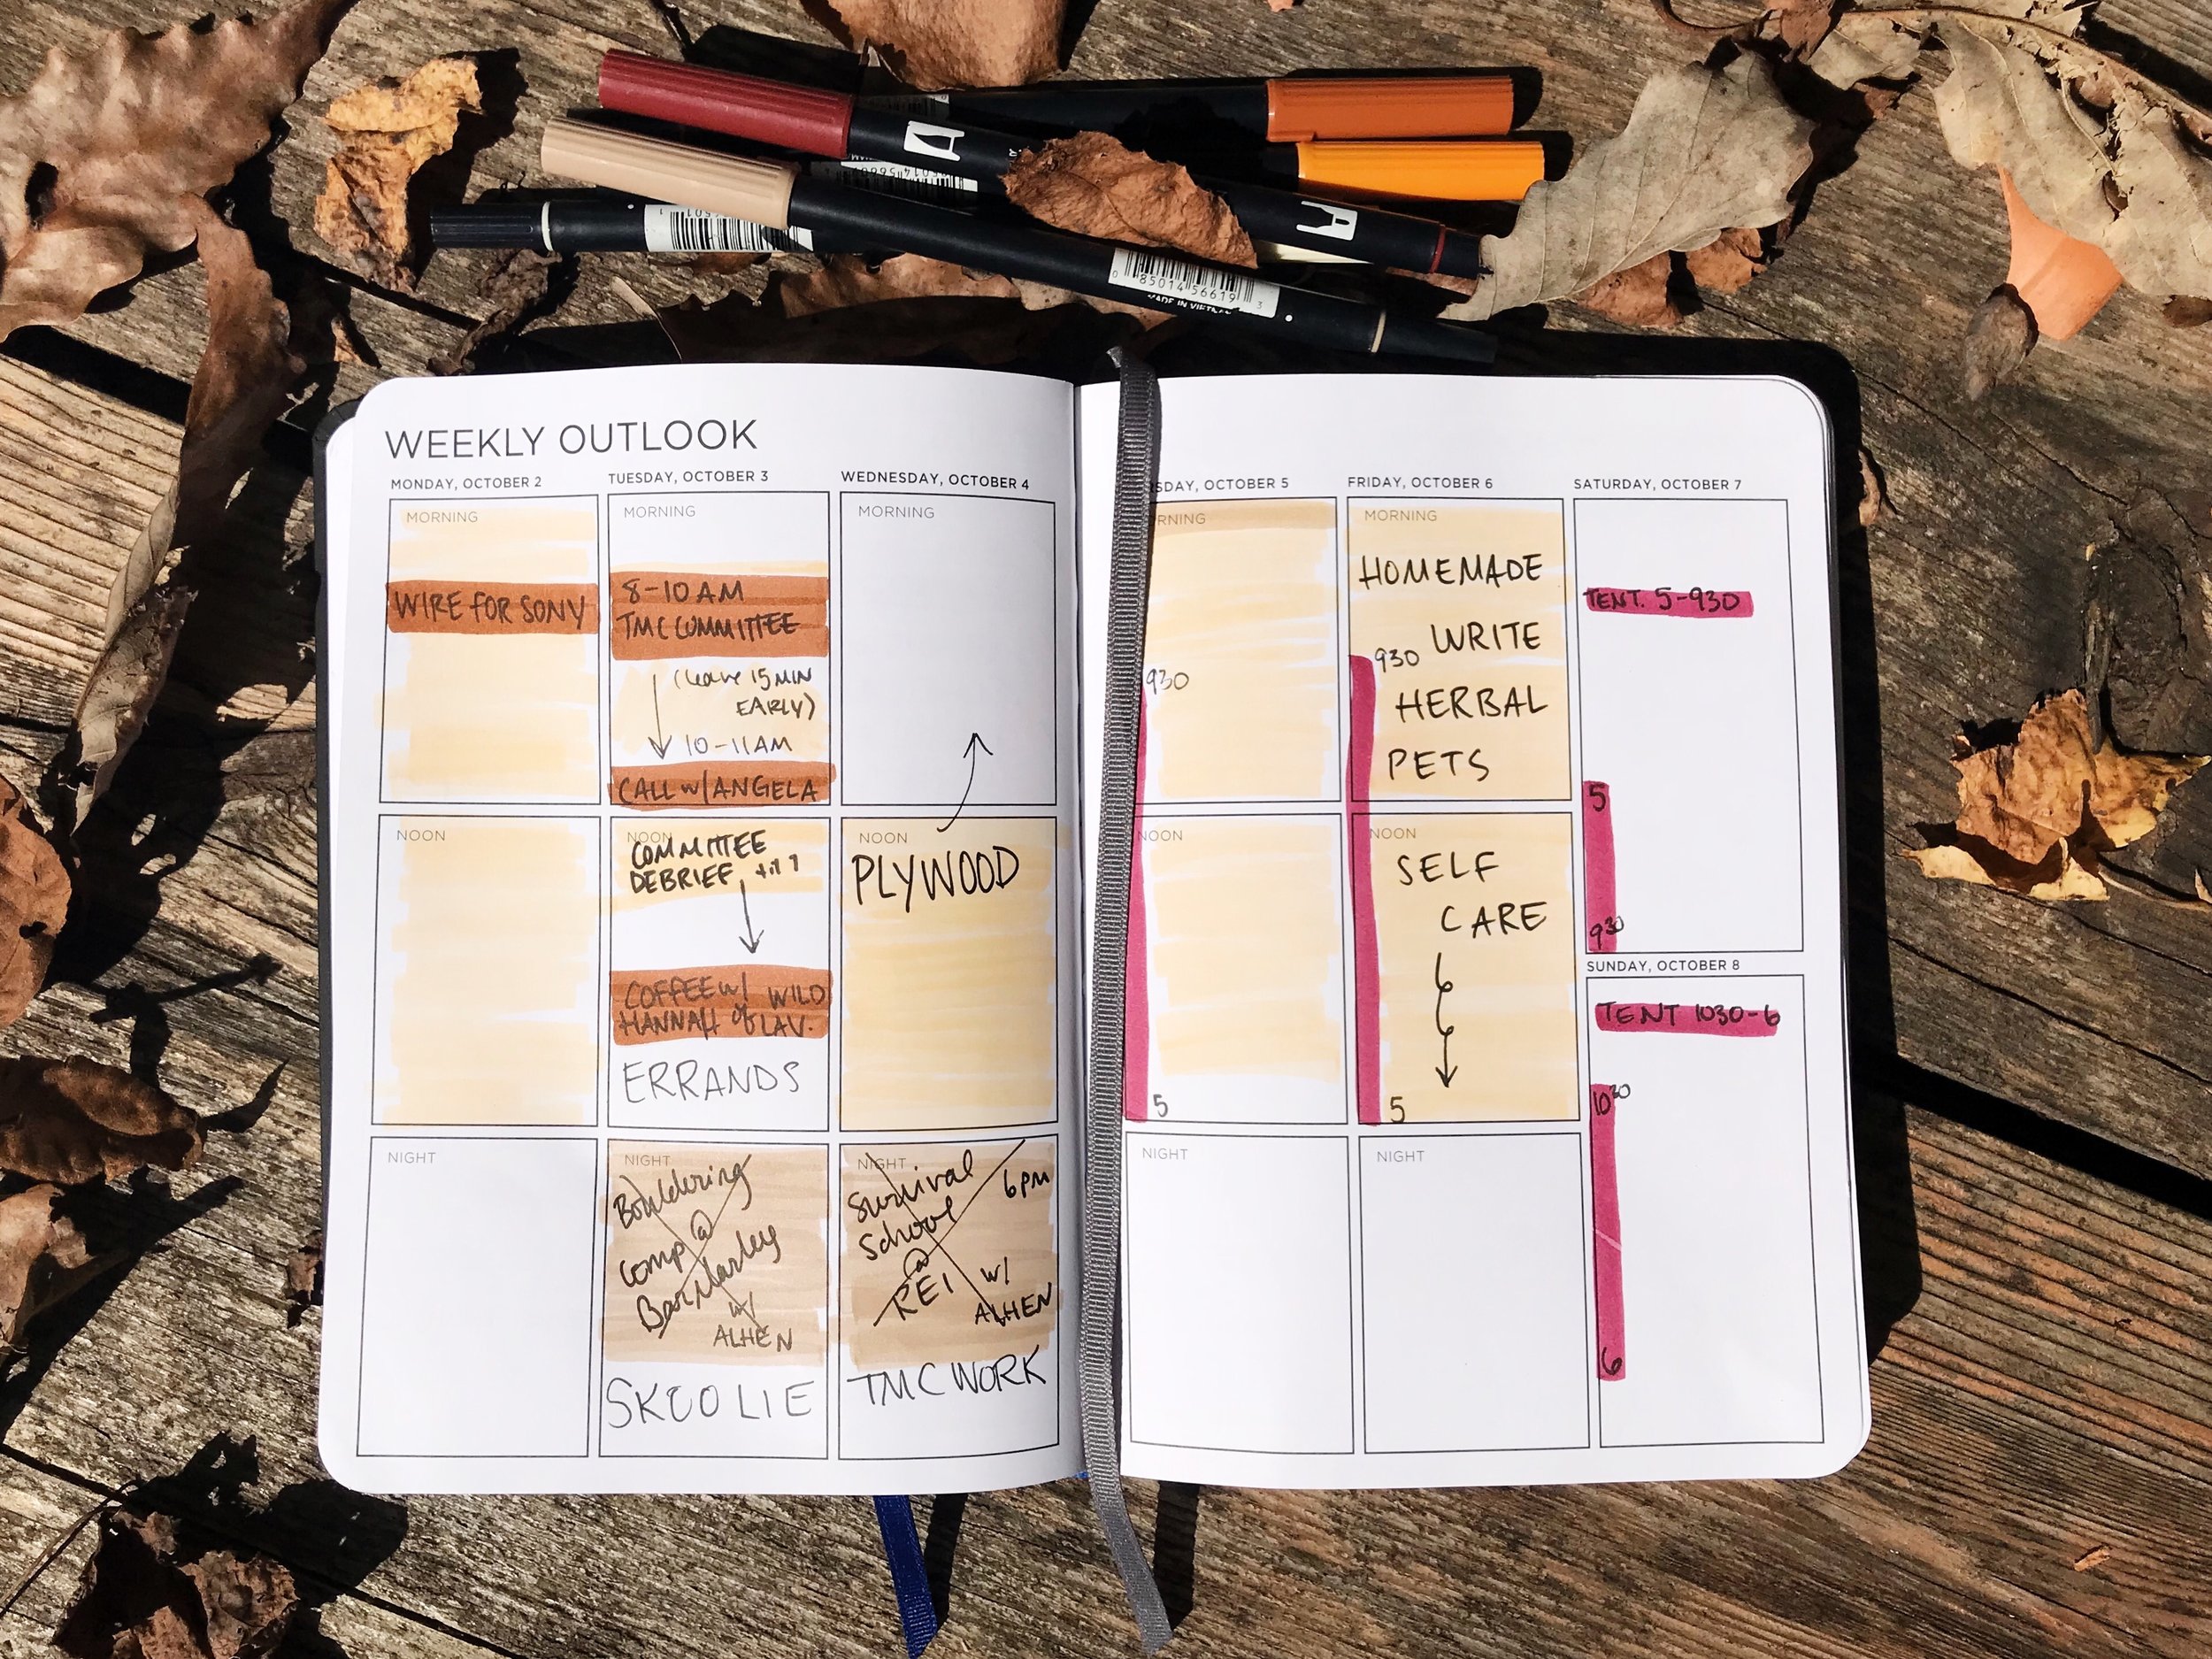 085014 56619 3
MADE IN VIETNAM
WEEKLY OUTLOOK
MONDAY, OCTOBER 2
MORNING
WIRE FOR SONY
NOON
NIGHT
TUESDAY, OCTOBER 3
MORNING
8-10 AM
TMC COMMITTEE
(leave 15 MIN
EARLY)
10-11AM
CALL W/ ANGELA
NOON
COMMITTEE
DEBRIEF til 1
COFFEE W/ WILD
HANNAH of LAV.
ERRANDS
NIGHT
Bouldering
comp @
w/
ALHEN
SKOOLIE
WEDNESDAY, OCTOBER 4
MORNING
NOON
PLYWOOD
NIGHT
Survival 6PM
School
@
REI w/
ALHEN
TMC WORK
RSDAY, OCTOBER 5
RNING
930
NOON
5
NIGHT
FRIDAY, OCTOBER 6
MORNING
HOMEMADE
930 WRITE
HERBAL
PETS
NOON
SELF
CARE
5
NIGHT
SATURDAY, OCTOBER 7
TENT. 5-930
5
930
SUNDAY, OCTOBER 8
TENT 1030-6
1030
6